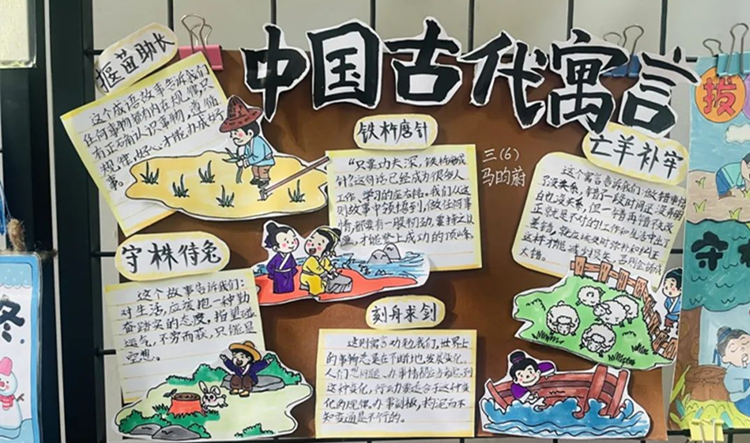 中国古代寓言
揠苗助长
这个成语故事告诉我们
任何事物都有内在规律,只
有正确认识事物,遵循
规律,好心才能办成好
事。
铁杵磨针
三(6)
马昀蔚
“只要功夫深,铁杵磨成
针”这句话已经成为很多人
工作、学习的座右铭。我们从这
则故事中领悟到,做任何事
情,都要有一股韧劲,要持之以
恒,才能登上成功的顶峰。
亡羊补牢
这个寓言告诉我们,做错事情
了没关系,
自也没关系,但一错再错不改
正就是不对的
这样才能减少损失
大错。
守株待兔
这个故事告诉我们:
对生活,应该抱一种勤
奋踏实的态度,指望碰
运气,不劳而获,只能是
空想。
刻舟求剑
这则寓言劝勉我们,世界上
的事物总是在不断地发展变化,
人们
这种变化,
化的规律。办事刻板,拘泥而不
知变通是不行的。
拔
守
冬